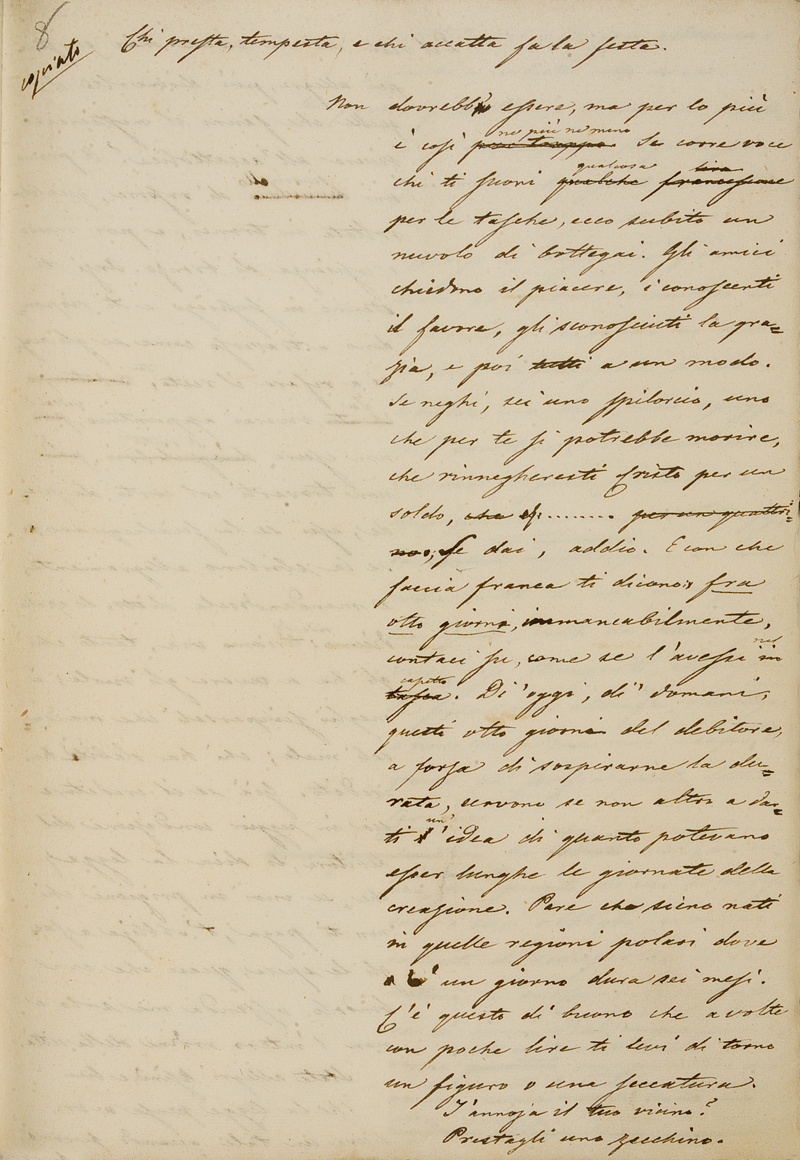 8
copiato
Chi presta, tempesta, e chi accatta fa la festa.
Non dovrebb' essere, ma per lo più
nè più nè meno
è così pur troppo. Se corre voce
qualcosa lira
chi ti suoni qualche francescone
per le tasche, ecco subito un
nuvolo di bottegai. Gli amici
chiedono il piacere, i conoscenti
il favore, gli sconosciuti la gra=
zia, e poi tutti a un modo.
Se neghi, sei uno spilorcio, uno
che per te si potrebbe morire,
che rinnegheresti Cristo per un
soldo, che ......... per un quattri=
no; se dai, addio. E con che
faccia franca ti dicono: fra
otto giorni, immancabilmente,
contaci su, come se l'avessi in
nel
cassetto
tasca. Di' oggi, di' domani,
questi otto giorni del debitore,
a forza di sospirarne la du=
rata, servono se non altro a dar=
un'
ti l'idea di quanto potevano
esser lunghe le giornate della
creazione. Pare che sieno nati
in quelle regioni polari dove
un giorno dura sei mesi.
C'è questo di buono che a volte
con poche lire ti levi di torno
un figuro o una seccatura.
T'annoja il tuo vicino?
Prestagli uno zecchino.